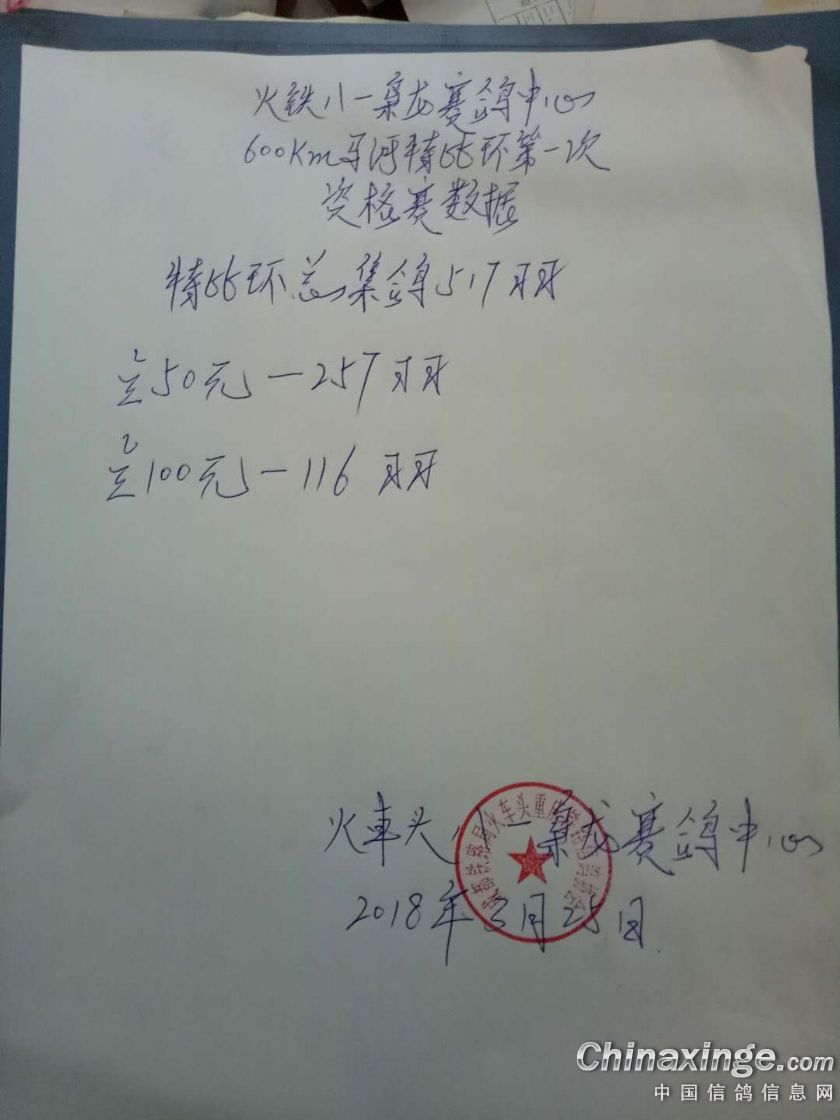 火铁八一枭龙赛鸽中心
600Km 特比环第一次
资格赛数据
特比环总集鸽517羽
50元—257羽
100元—116羽
火車头八一枭龙赛鸽中心
2018年3月25日
Chinaxinge.com
中国信鸽信息网